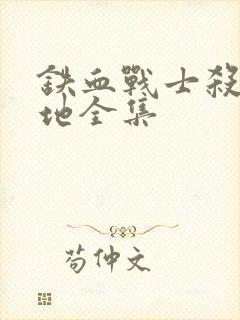 鉄血戰士殺
地全集
苟仲文